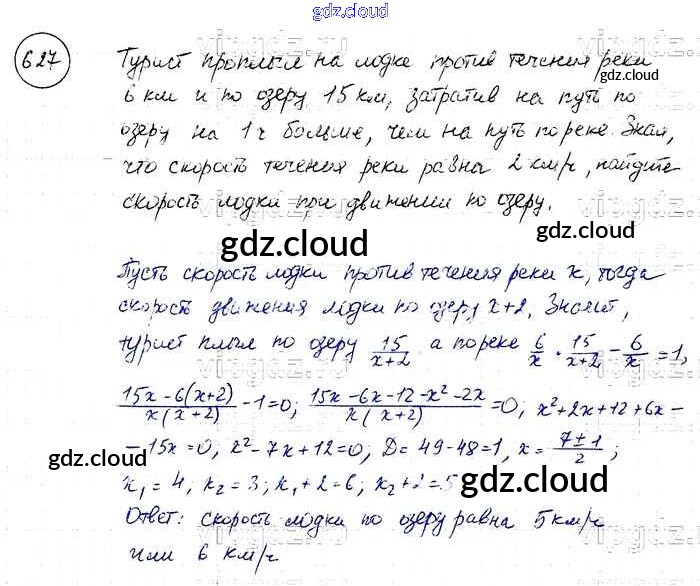 gdz.cloud
627
Турист проплыл на лодке против течения реки
6 км и по озеру 15 км, затратив на путь по
озеру на 1 ч больше, чем на путь по реке. Зная,
что скорость течения реки равна 2 км/ч, найдите
скорость лодки при движении по озеру.
gdz.cloud
gdz.cloud
gdz.cloud
gdz.cloud
Пусть скорость лодки против течения реки x, тогда
скорость движения лодки по озеру x+2, Значит,
турист плыл по озеру 15/(x+2) а по реке 6/x. 15/(x+2) - 6/x = 1,
(15x-6(x+2))/(x(x+2)) - 1=0; (15x-6x-12-x²-2x)/(x(x+2)) = 0; x²+2x+12+6x-
-15x=0, x²-7x+12=0, D=49-48=1, x=(7±1)/2;
x₁=4, x₂=3; x₁+2=6; x₂+2=5
Ответ: скорость лодки по озеру равна 5 км/ч
или 6 км/ч
gdz.cloud
gdz.cloud
gdz.cloud
gdz.cloud